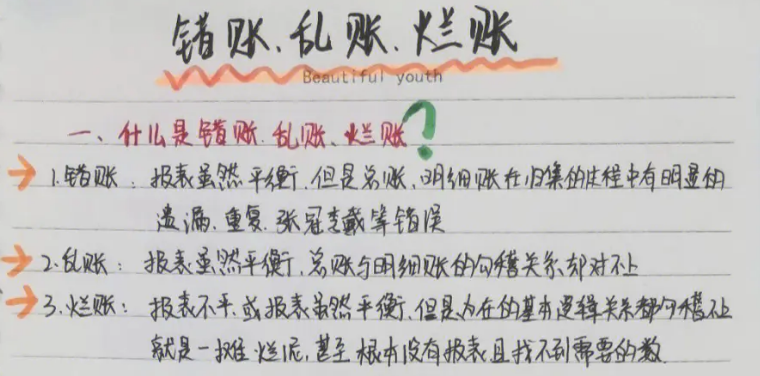 错账、乱账、烂账
Beautiful youth
一、什么是错账、乱账、烂账?
1.错账:报表虽然平衡,但是总账、明细账在归集的过程中有明显的
遗漏、重复、张冠李戴等错误
2.乱账:报表虽然平衡,总账与明细账的勾稽关系却对不上
3.烂账:报表不平,或报表虽然平衡,但是内在的基本逻辑关系都勾稽不上
就是一摊烂泥,甚至根本没有报表且找不到需要的数